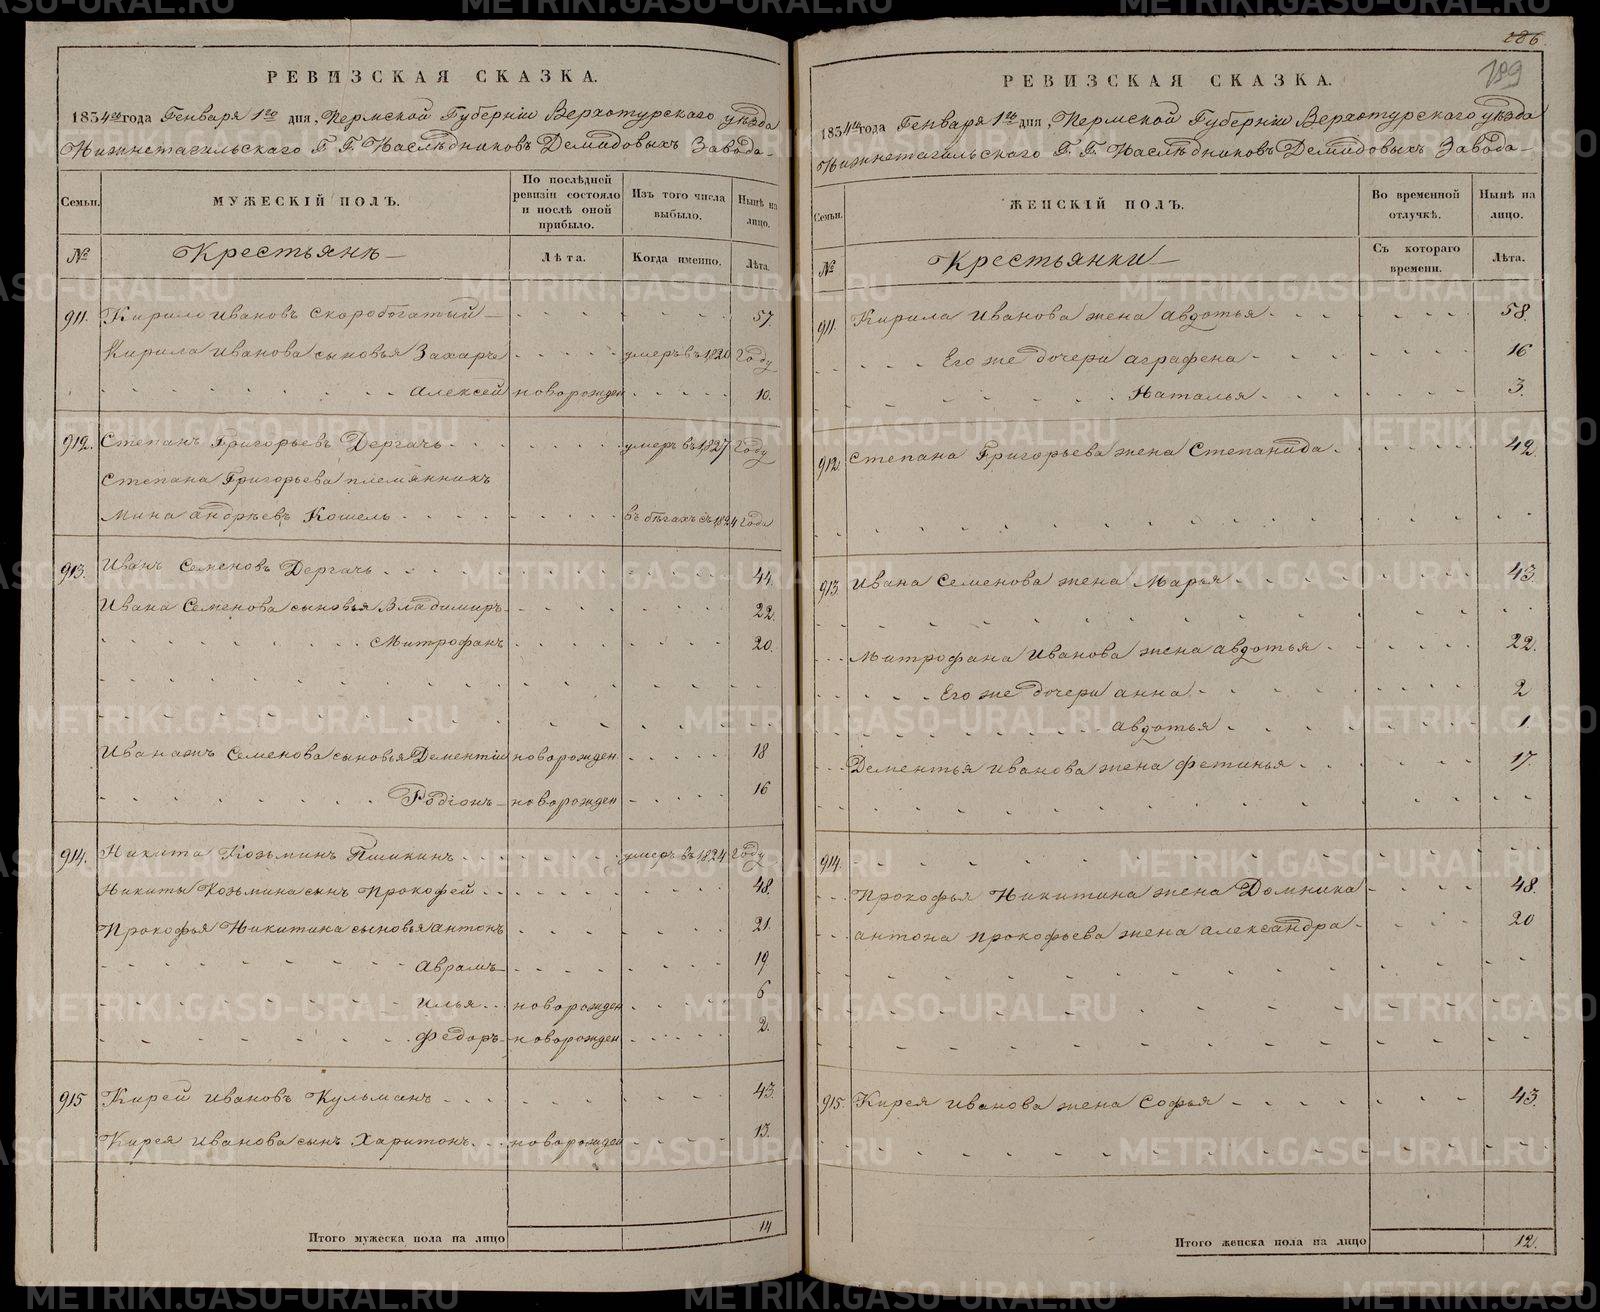 РЕВИЗСКАЯ СКАЗКА.
1834го года Генваря 1го дня, Пермской Губерніи Верхотурского уѣзда
Нижнетагильского Г. Г. Наслѣдниковъ Демидовыхъ Завода
Семьи.
МУЖЕСКІЙ ПОЛЪ.
По послѣдней ревизіи состояло и послѣ оной прибыло.
Изъ того числа выбыло.
Нынѣ на лицо.
№
Крестьянъ
Лѣта.
Когда именно.
Лѣта.
911. Кирило Ивановъ Скоробогатый 57.
Кирила Иванова сыновья Захаръ умеръ въ 1820 году
Алексей новорожден 10.
912. Степанъ Григорьевъ Дергачь умеръ въ 1827 году
Степана Григорьева племянникъ
Мина Андрѣевъ Кошель въ бѣгахъ съ 1824 года
913. Иванъ Семеновъ Дергачь 44.
Ивана Семенова сыновья Владимиръ 22.
Митрофанъ 20.
Иванажъ Семенова сыновья Дементіи новорожден 18
Родіонъ новорожден 16
914. Никита Козьминъ Пшикинъ умеръ въ 1824 году
Никиты Козьмина сынъ Прокофей 48.
Прокофья Никитина сыновья Антонъ 21.
Аврамъ 19
Илья новорожден 6
Федоръ новорожден 2.
915 Кирей Ивановъ Кульманъ 43.
Кирея Иванова сынъ Харитонъ новорожден 13.
Итого мужеска пола на лицо 14
186.
189
РЕВИЗСКАЯ СКАЗКА.
1834го года Генваря 1го дня, Пермской Губерніи Верхотурского уѣзда
Нижнетагильского Г. Г. Наслѣдниковъ Демидовыхъ Завода
Семьи.
ЖЕНСКІЙ ПОЛЪ.
Во временной отлучкѣ.
Нынѣ на лицо.
№
Крестьянки
Съ котораго времени.
Лѣта.
911. Кирила Иванова жена Авдотья 58.
Его же дочери Аграфена 16
Наталья 3.
912. Степана Григорьева жена Степанида 42
913. Ивана Семенова жена Марья 43.
Митрофана Иванова жена Авдотья 22.
Его же дочери Анна 2
Авдотья 1
Дементья Иванова жена Фетинья 17.
914.
Прокофья Никитина жена Домника 48.
Антона Прокофьева жена Александра 20
915. Кирея Иванова жена Софья 43.
Итого женска пола на лицо 12.
METRIKI.GASO-URAL.RU